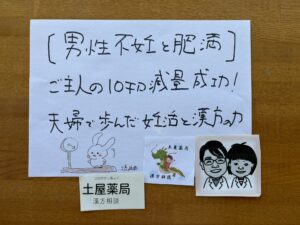 [男性不妊と肥満]
ご主人の10キロ減量成功!
夫婦で歩んだ妊活と漢方の力
土屋薬局
漢方相談
土屋薬局
漢方相談